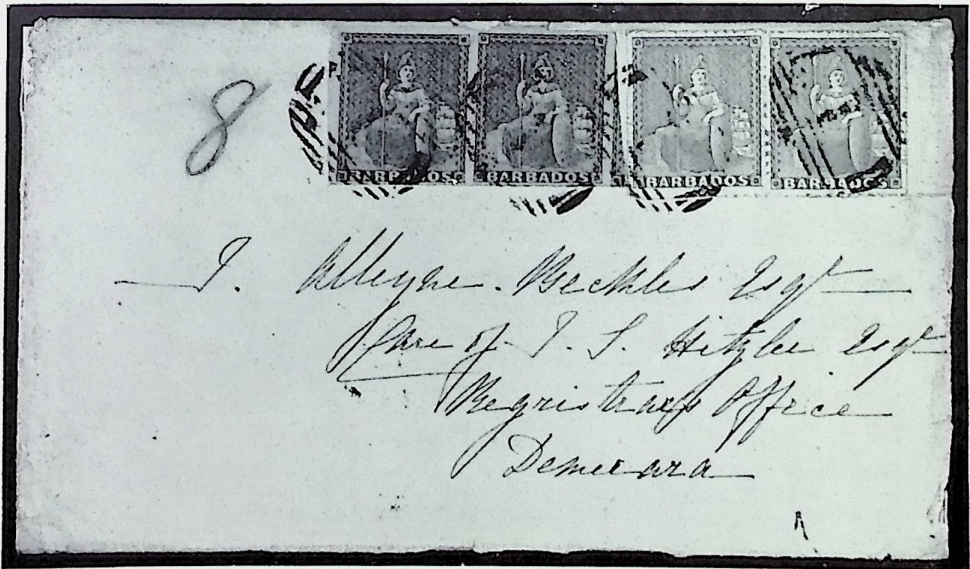 BARBADOS BARBADOS BARBADOS BARBADOS
8
J. Alleyne Beckles Esqr
Care of J. S. Hitzler Esqr
Registrar's Office
Demerara